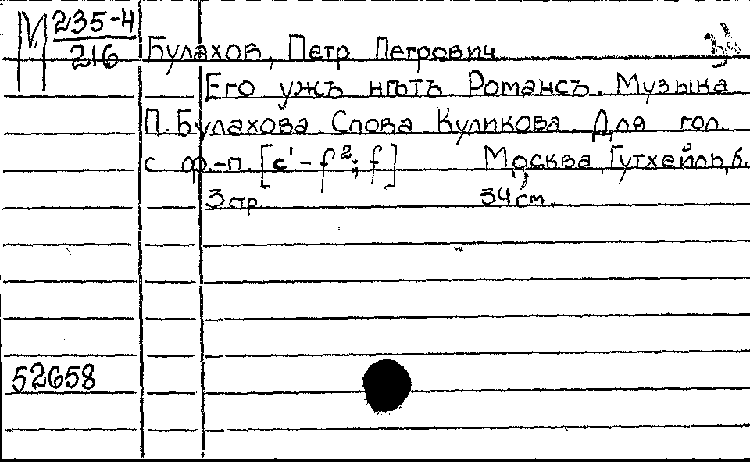 М 235-4
216
Булахов, Петр Петрович
Его ужъ нѣтъ Романсъ. Музыка
П. Булахова Слова Куликова Для гол.
с ф.-п. [c¹ - f²; f] Москва, Гутхейль, б.
3 стр. 34 см.
52658